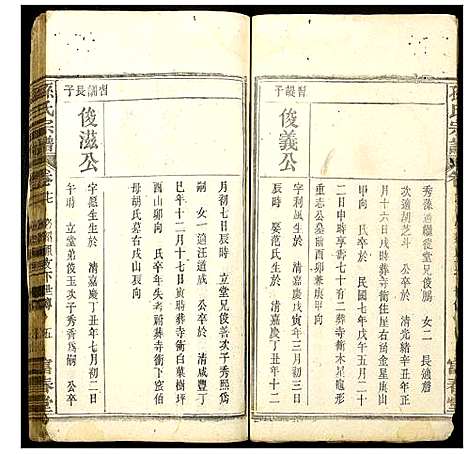 孫氏宗譜
俊義公
字利風生於 清嘉慶寅年三月初三日
辰時 娶范氏生於 清嘉慶丁丑年十二
重志公墓苜酉卯兼庚甲向
二日申時享壽七十有二葬寺衝木星龜形
甲向 氏卒於 民國七年戊午五月二十
月十六日戌時葬寺衝住屋右崗金星庚山
次適胡芝斗 公卒於 清光緒辛丑年正
秀藻道繼從堂兄俊勝 女二 長適詹
俊滋公
字 生於 清嘉慶丁丑年七月初二日
午時 立堂弟俊玉次子秀香爲嗣 公卒
母胡氏墓右戌山辰向
酉山卯向 氏卒年失考葬
巳年十二月十七日寅時葬寺衝白菓樹坪
嗣 女一適汪道成 公卒於 清咸豐丁
月初七日辰時 立堂兄俊善次子秀熙爲
孫氏宗譜
卷
五
富春堂